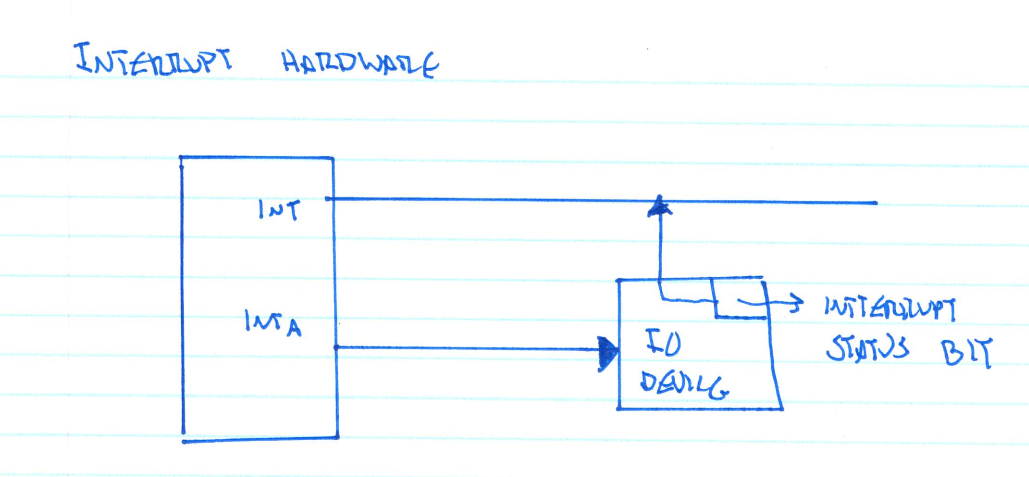 INTERRUPT HARDWARE
INT
INTA
IO
DEVICE
INTTERRUPT
STATUS BIT